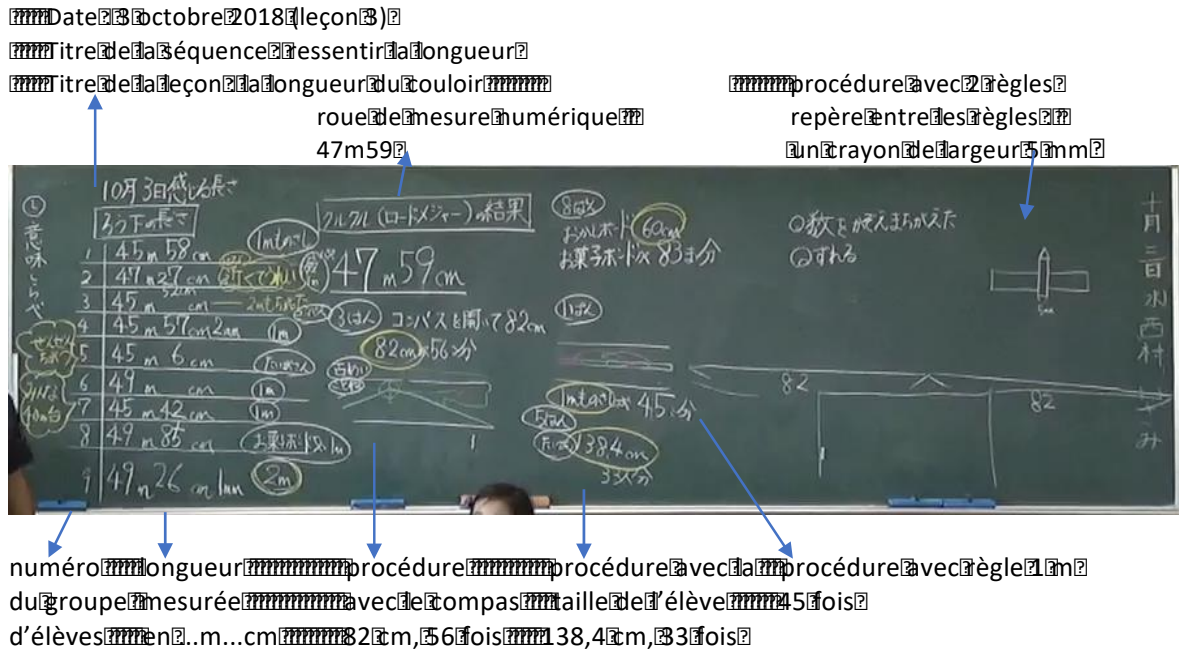 Date : 3 octobre 2018 (leçon 3)
Titre de la séquence : ressentir la longueur
Titre de la leçon : la longueur du couloir
roue de mesure numérique
47m59
procédure avec 2 règles
repère entre les règles :
un crayon de largeur 5 mm
10月3日感じる長さ
ろう下の長さ
1 45m58cm
2 47m27cm
3 45m 52cm
4 45m57cm2mm 1m
5 45m6cm
6 49m cm 1m
7 45m42cm 1m
8 49m85cm お菓子ボード 1m
9 49m26cm1mm 2m
意味しらべ
1mものさし
クルクル(ロードメジャー)の結果
47m59cm
3はん コンパスを開いて82cm
82cm×56こ分
8はん
おかしボード 60cm
お菓子ボード×83こ分
1ぱん
1mものさし 45こ分
5はん
138.4cm
33人分
①数をかぞえまちがえた
②ずれる
5mm
82
82
十月三日水西村
numéro
du groupe
d'élèves
longueur
mesurée
en ..m...cm
procédure
avec le compas
82 cm, 56 fois
procédure avec la
taille de l'élève
138,4 cm, 33 fois
procédure avec règle 1 m
45 fois